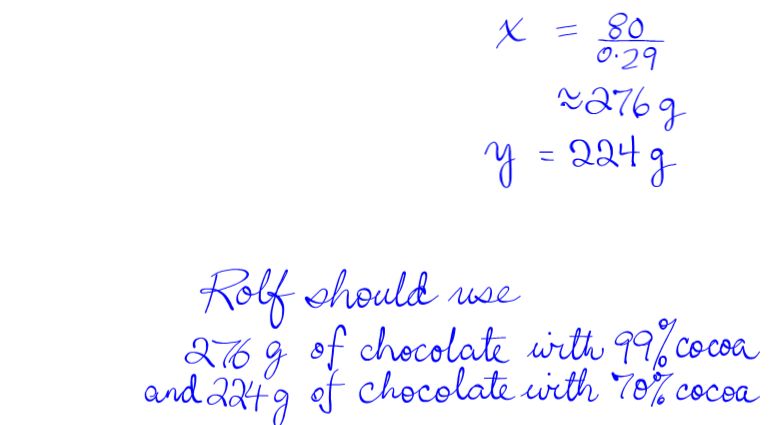 x = 80/0.29
≈276 g
y = 224 g
Rolf should use
276 g of chocolate with 99% cocoa
and 224 g of chocolate with 70% cocoa